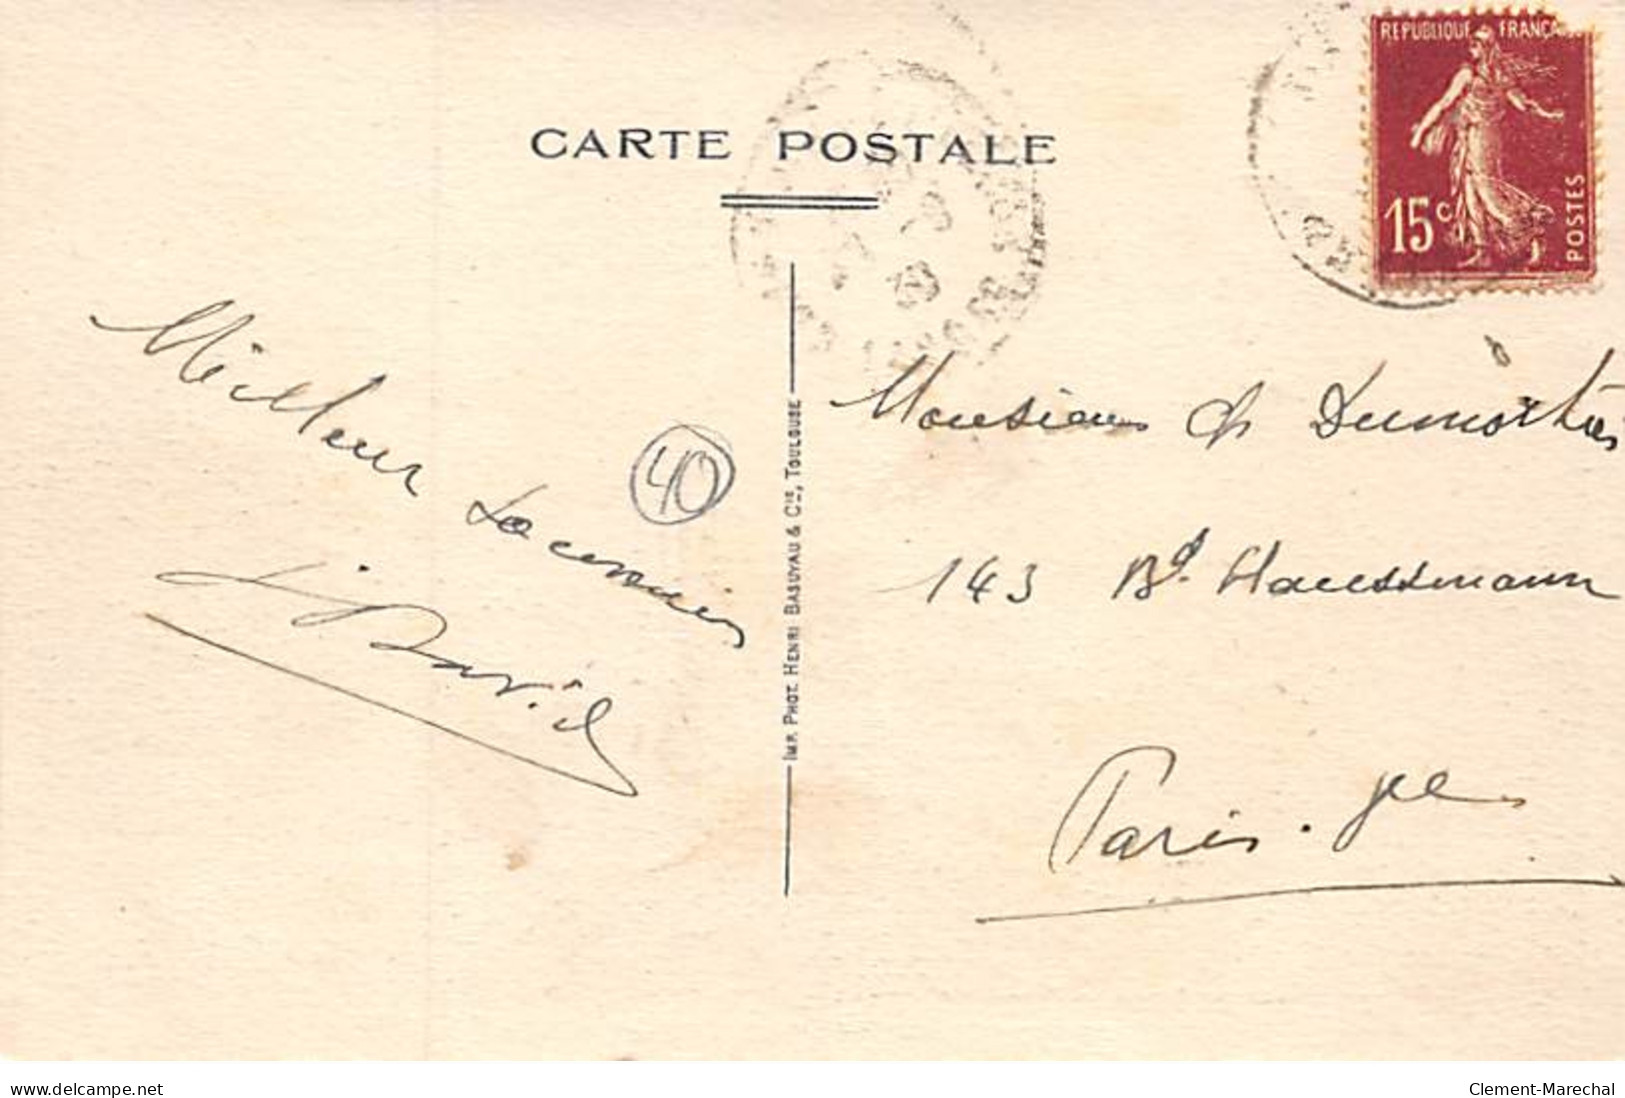 CARTE POSTALE
REPUBLIQUE FRANÇAISE
15c
POSTES
Meilleur Souvenir
David
40
IMP. PHOT. HENRI BASUYAU & CIE, TOULOUSE
Monsieur Ch Dumortier
143 Bd. Haussmann
Paris.
www.delcampe.net
Clement-Marechal